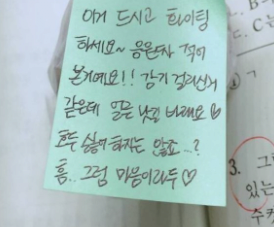 이거 드시고 화이팅
하세요~ 응원하다 적어
본거에요!! 감기 걸리신거
같은데 얼른 낫길 바래요♡
호두 싫어하지는 않죠..?
흠.. 그럼 마음이라두♡
B-
d. C
ㄱ
3. 그
있는
수